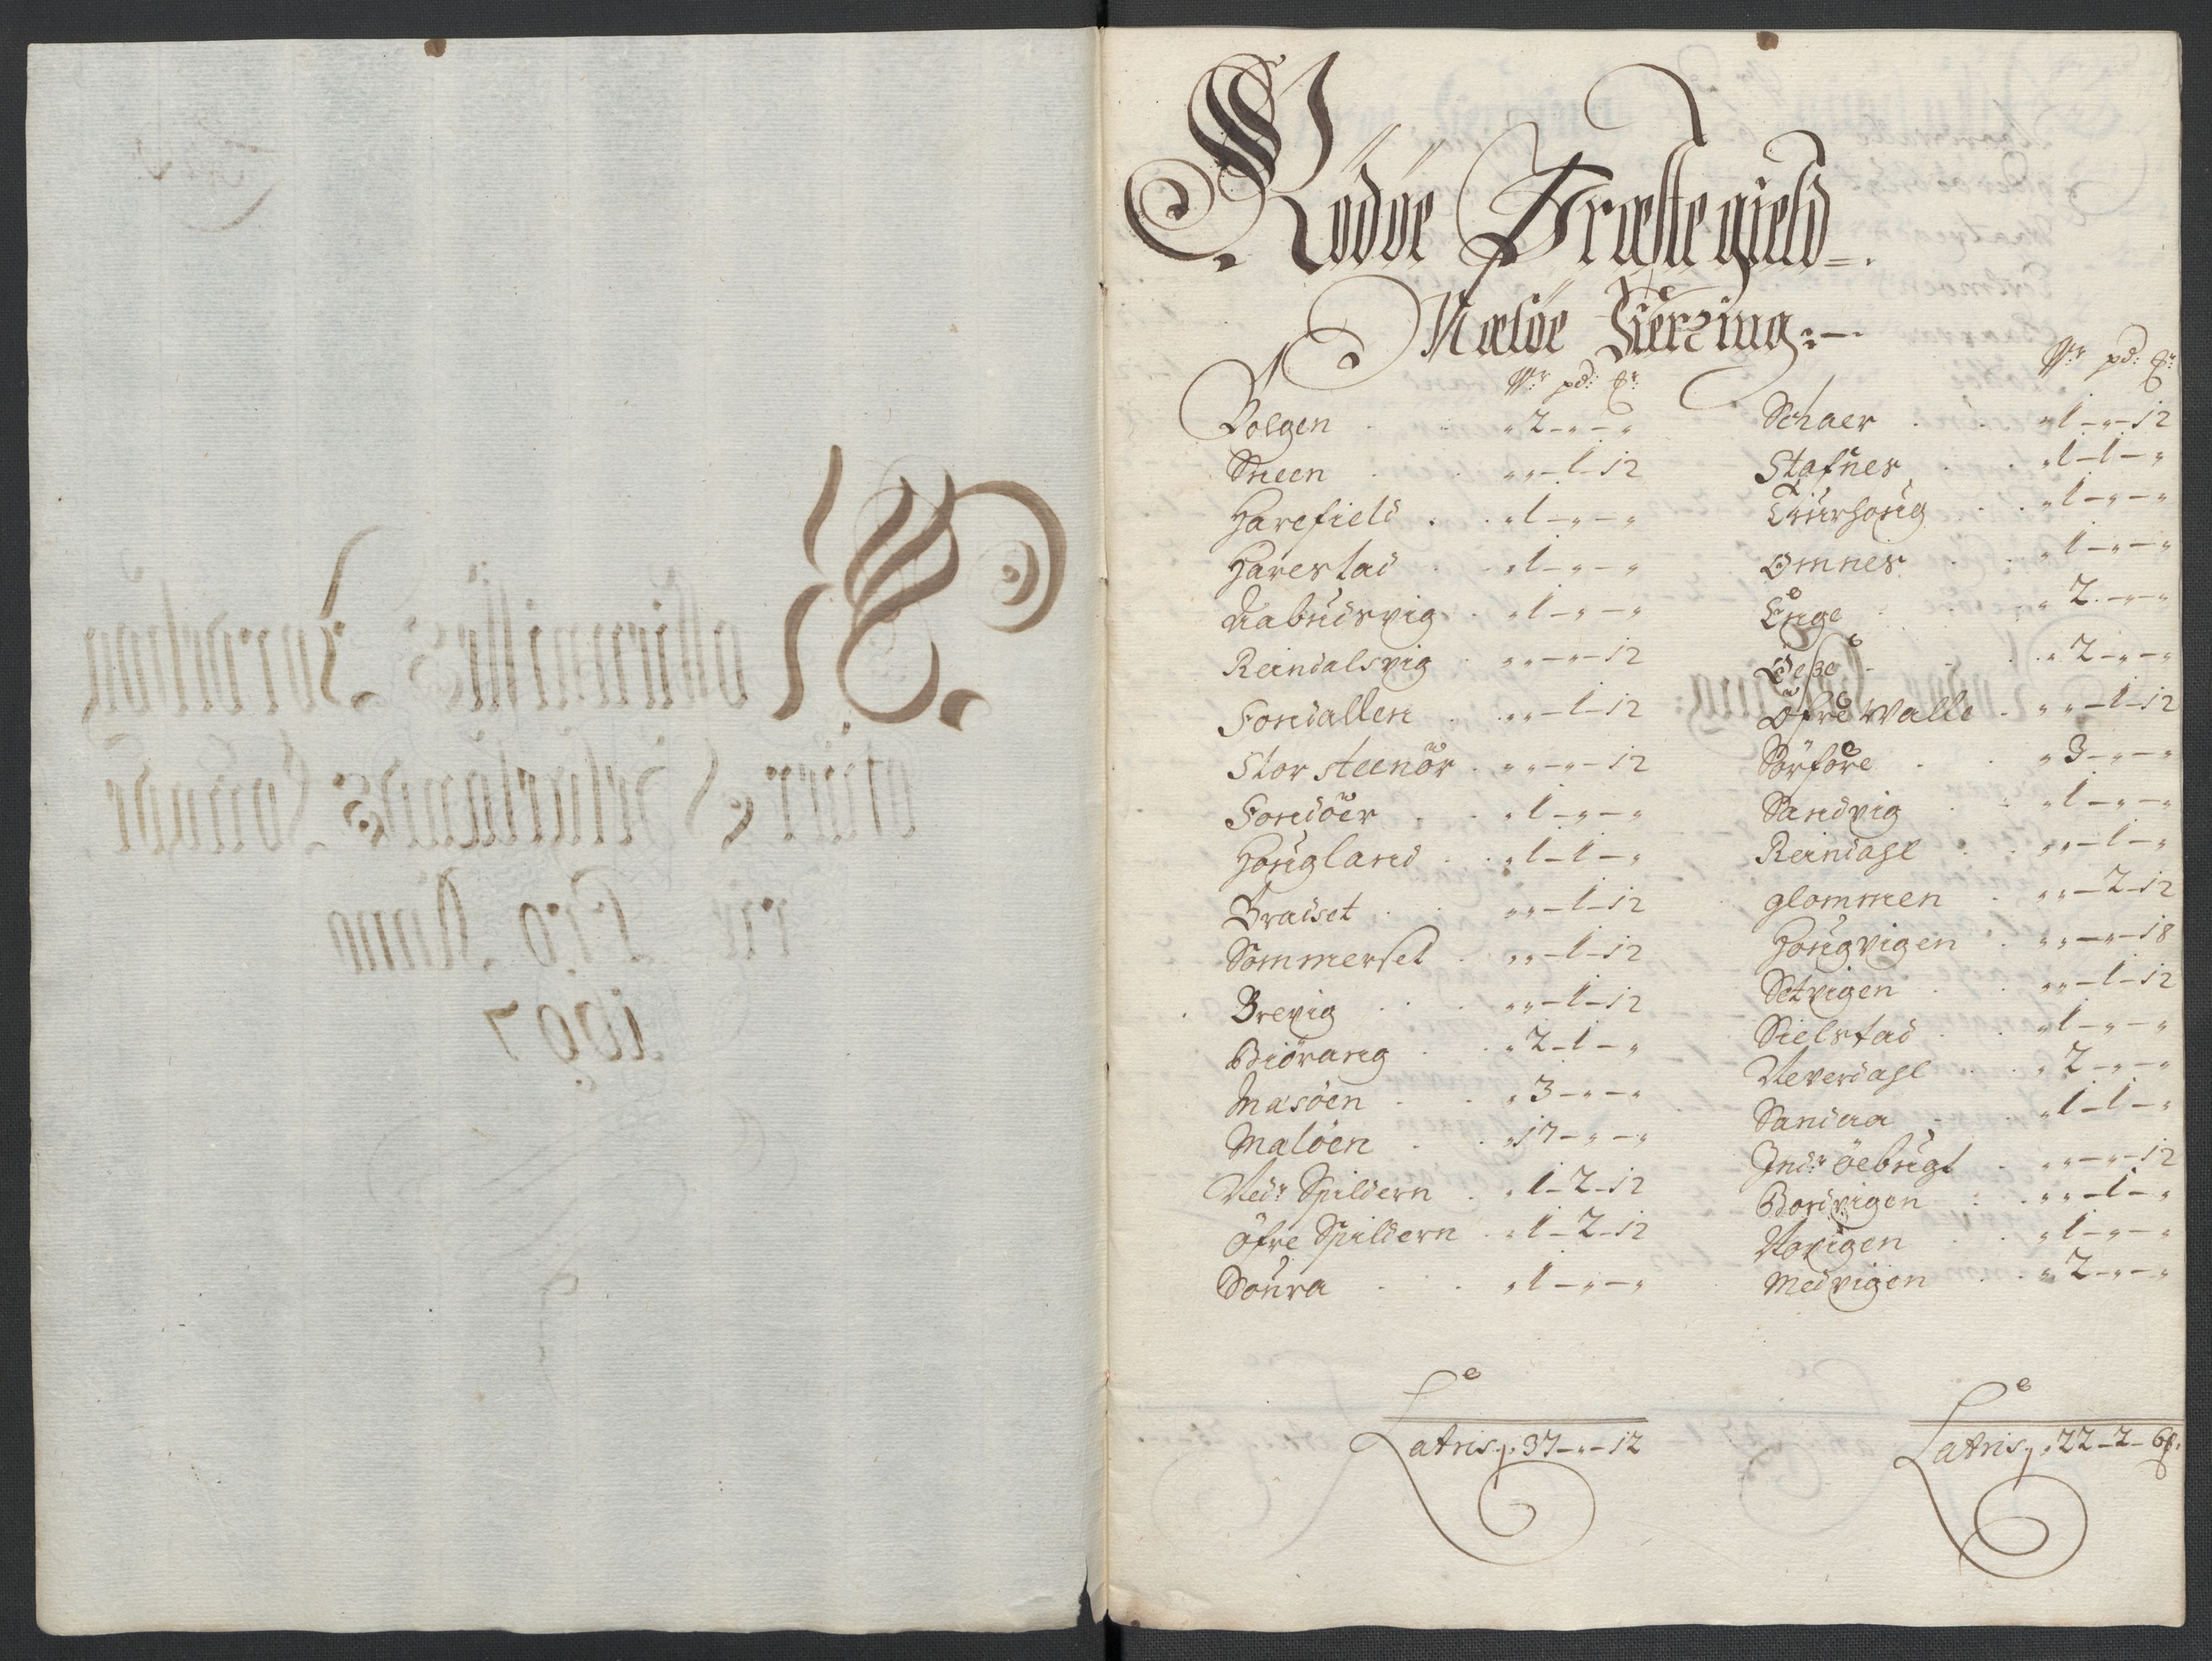 Rödöe Præstegield
Meløe Fierding
W: pd: ℔:
Bolgen „ 2 – „ – „
Sneen „ „ – 1 – 12
Harefield „ 1 – „ – „
Harestad „ 1 – „ – „
Nabudsvig „ 1 – „ – „
Reindalsvig „ „ – „ – 12
Fondallen „ „ – 1 – 12
Storsteenör „ „ – „ – 12
Fondöer „ 1 – „ – „
Hougland „ 1 – 1 – „
Bradset „ „ – 1 – 12
Sommerset „ „ – 1 – 12
Brevig „ „ – 1 – 12
Biörang „ 2 – 1 – „
Mæsöen „ 3 – „ – „
Malöen „ 17 – „ – „
Nedr Spildern „ 1 – 2 – 12
Öfre Spildern „ 1 – 2 – 12
Soura „ 1 – „ – „
Lateris „ 37 – „ – 12
W: pd: ℔:
Schaer „ 1 – „ – 12
Stafnes „ 1 – 1 – „
„ 1 – „ – „
Omnes „ 1 – „ – „
Enge „ 2 – „ – „
„ 2 – „ – „
Öfre Walle „ „ – 1 – 12
Sörfore „ 3 – „ – „
Sandvig „ 1 – „ – „
Reindahl „ „ – 1 – „
glommen „ „ – 2 – 12
Hougvigen „ „ – „ – 18
Setvigen „ „ – 1 – 12
Sielstad „ 1 – „ – „
Neverdahl „ 2 – „ – „
Sandaa „ 1 – 1 – „
Indr öebugt „ „ – „ – 12
Bordvigen „ „ – 1 – „
Vavigen „ 1 – „ – „
Medvigen „ 2 – „ – „
Lateris „ 22 – 2 – 6